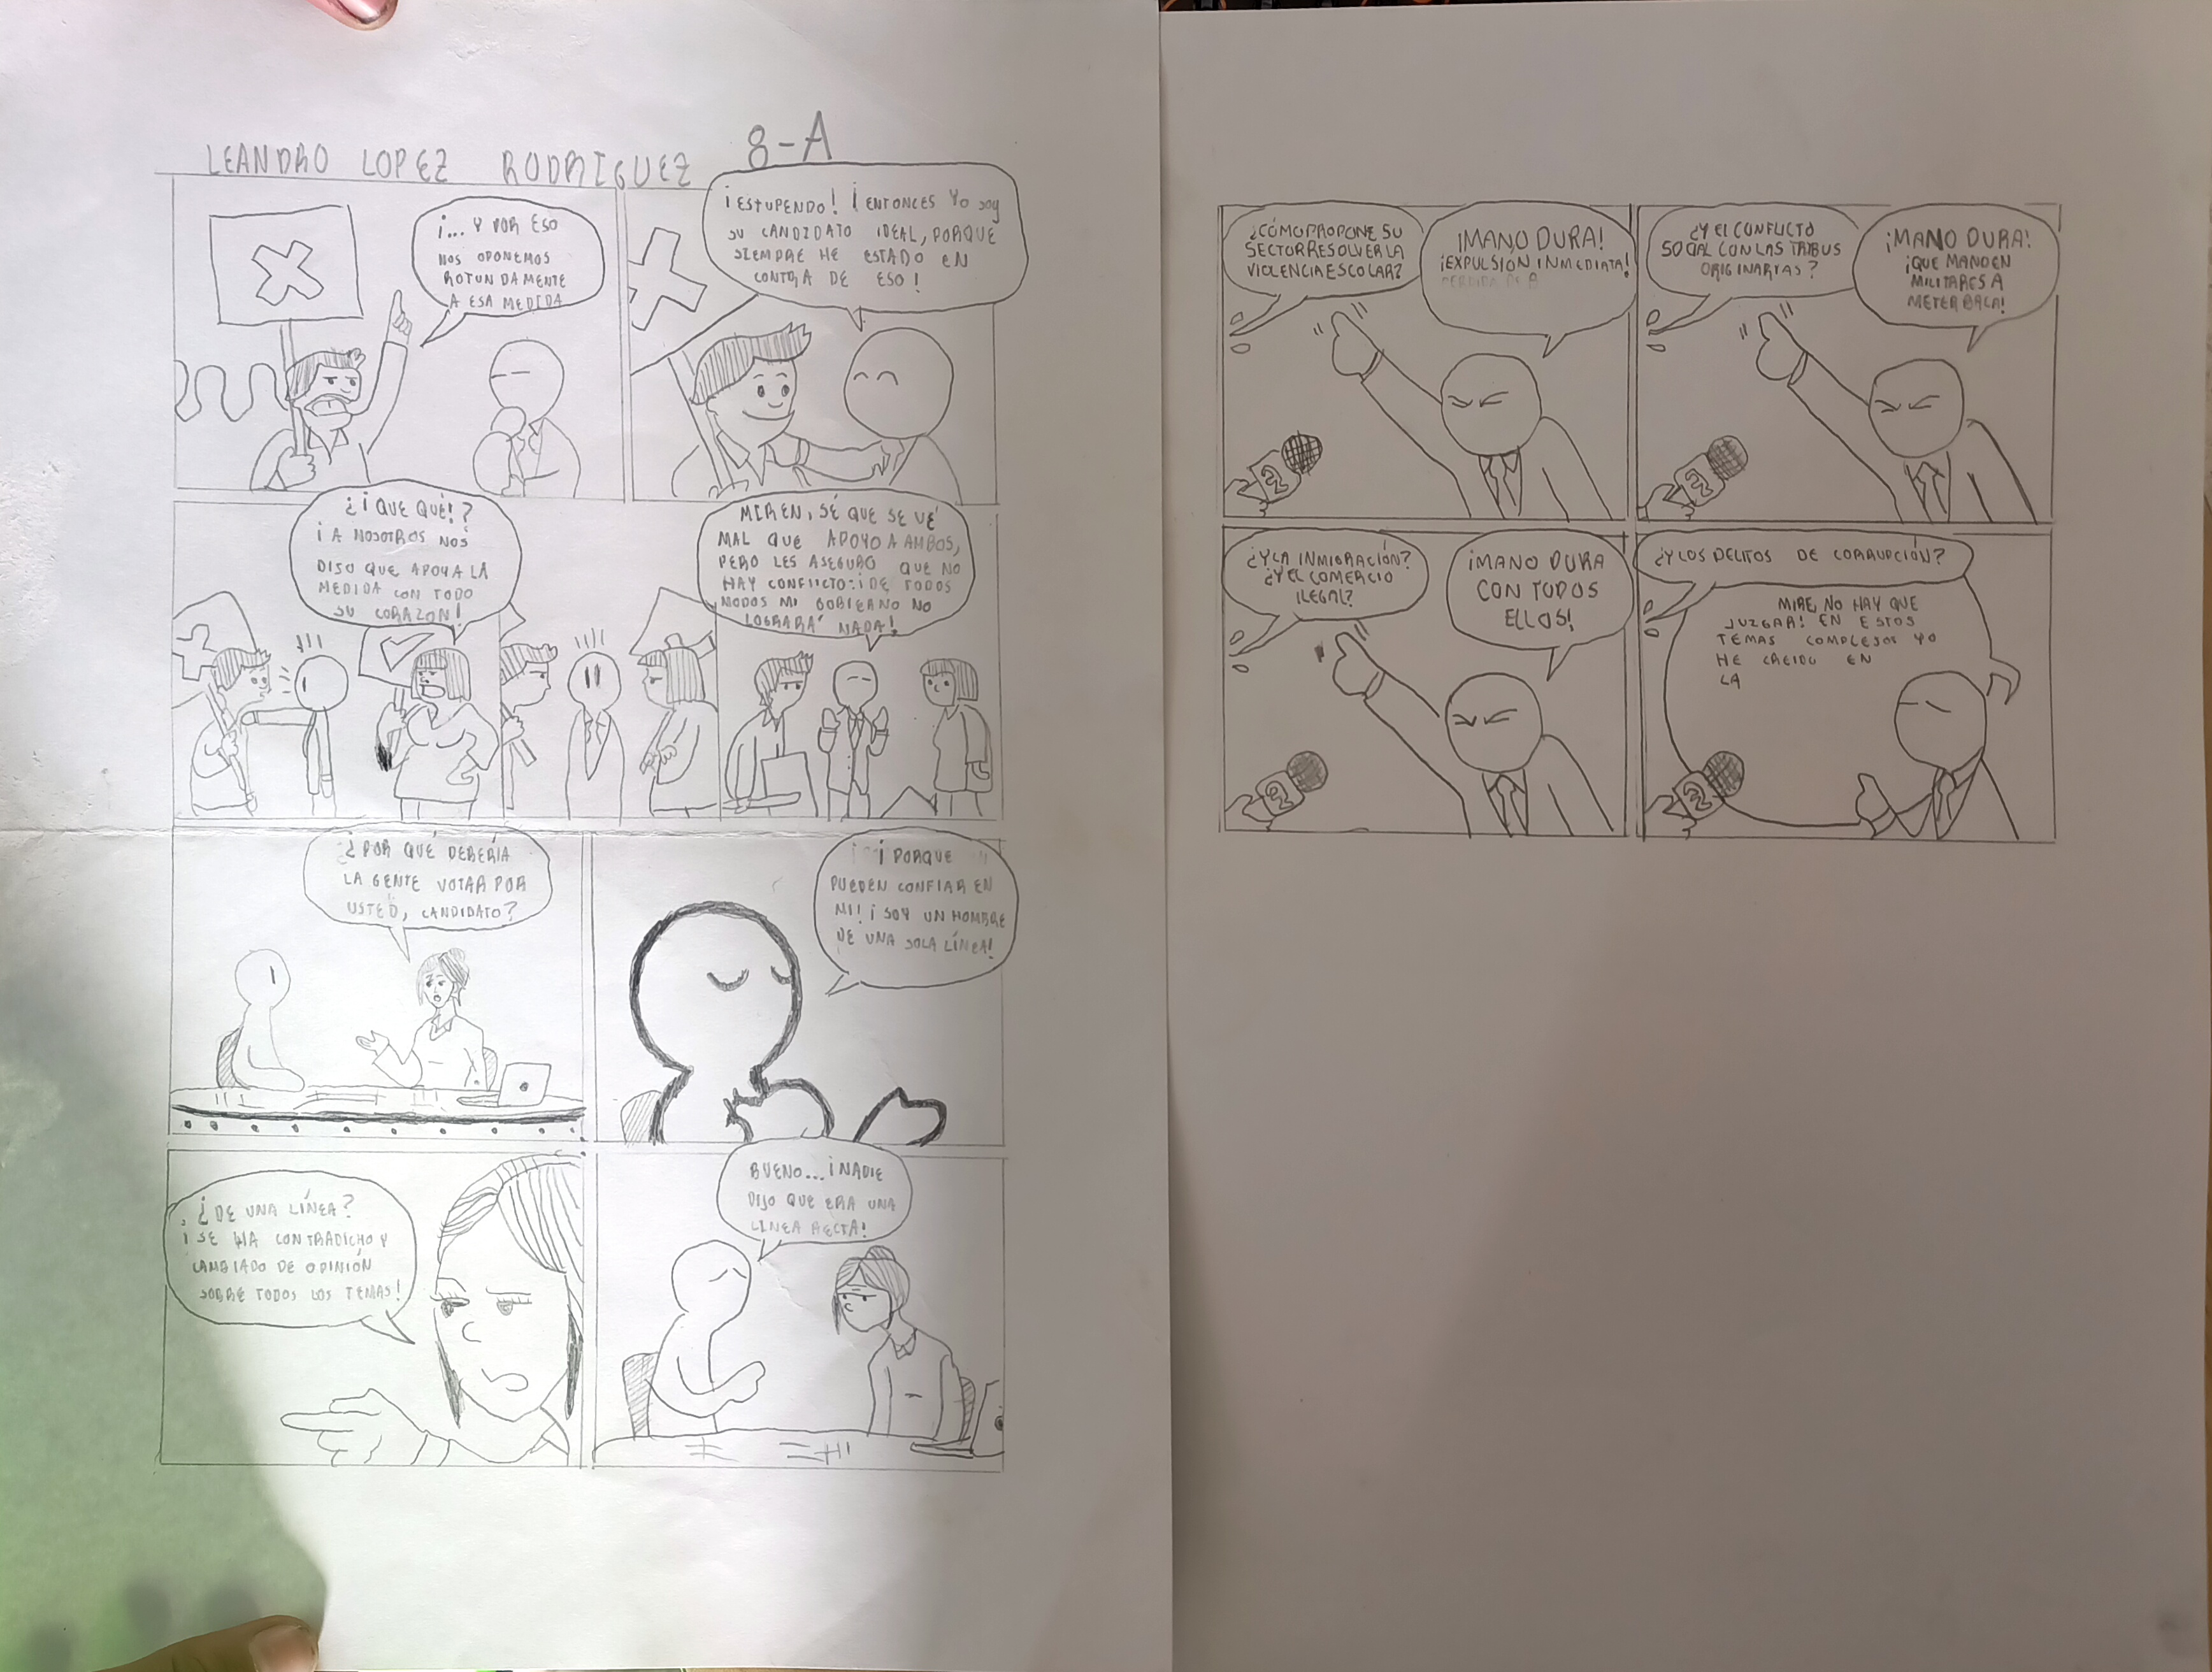 LEANDRO LOPEZ RODRIGUEZ 8-A
¡... Y POR ESO
NOS OPONEMOS
ROTUNDAMENTE
A ESA MEDIDA
¡ESTUPENDO! ¡ENTONCES YO SOY
SU CANDIDATO IDEAL, PORQUE
SIEMPRE HE ESTADO EN
CONTRA DE ESO!
¿¡QUE QUÉ!?
¡A NOSOTROS NOS
DIJO QUE APOYA LA
MEDIDA CON TODO
SU CORAZON!
MIREN, SÉ QUE SE VÉ
MAL QUE APOYO A AMBOS,
PERO LES ASEGURO QUE NO
HAY CONFLICTO: ¡DE TODOS
MODOS MI GOBIERNO NO
LOGRARÁ NADA!
¿POR QUÉ DEBERÍA
LA GENTE VOTAR POR
USTED, CANDIDATO?
¡PORQUE
PUEDEN CONFIAR EN
MI! ¡SOY UN HOMBRE
DE UNA SOLA LÍNEA!
¿DE UNA LÍNEA?
¡SE HA CONTRADICHO Y
CAMBIADO DE OPINIÓN
SOBRE TODOS LOS TEMAS!
BUENO... ¡NADIE
DIJO QUE ERA UNA
LINEA RECTA!
¿CÓMO PROPONE SU
SECTOR RESOLVER LA
VIOLENCIA ESCOLAR?
¡MANO DURA!
¡EXPULSIÓN INMEDIATA!
2
¿Y EL CONFLICTO
SOCIAL CON LAS TRIBUS
ORIGINARIAS?
¡MANO DURA!
¡QUE MANDEN
MILITARES A
METER BALA!
2
¿Y LA INMIGRACIÓN?
¿Y EL COMERCIO
ILEGAL?
¡MANO DURA
CON TODOS
ELLOS!
2
¿Y LOS DELITOS DE CORRUPCIÓN?
MIRE, NO HAY QUE
JUZGAR! EN ESTOS
TEMAS COMPLEJOS YO
HE CREIDO EN
LA
2